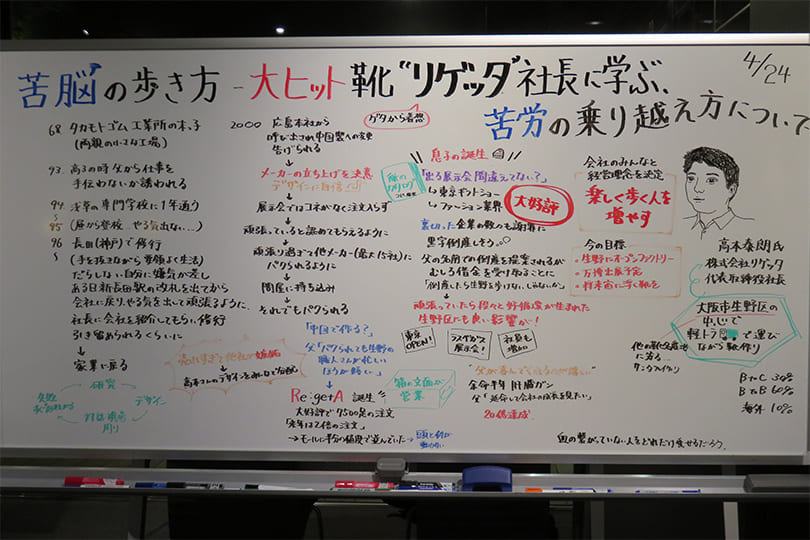 苦脳の歩き方 - 大ヒット靴"リゲッダ"社長に学ぶ、
苦労の乗り越え方について
4/24
68. タカモトゴム工業所の末っ子
(両親の小さな工場)
93. 高3の時父から仕事を
手伝わないか誘われる
94. 浅草の専門学校に1年通う
95 (昼から登校…やる気出ない…)
96 長田(神戸)で修行
(手を抜きながら要領よく生活)
だらしない自分に嫌気が差し
ある日新長田駅の改札を出てから
会社に戻り、やる気を出して頑張るように、
社長に会社を紹介してもらい修行
引き留められるくらいに
家業に戻る
研究
デザイン
売れすぎて他社が嫉妬
2000 広島本社から
呼び出され中国製への変更
告げられる
ゲタから着想
メーカーの立ち上げを決意
デザインに自信
展示会ではコネがなく注文入らず
頑張っていると認めてもらえるように
頑張り過ぎて他メーカー(最大15社)に
パクられるように
問屋に持ち込み
それでもパクられる
「中国で作る?」
父「パクられても生野の
職人さんが忙しい
ほうが嬉しい」
Re:getA 誕生
大好評で9500足の注文
「来年は2倍の注文」
→モールに半分の値段で並んでいた
息子の誕生
「出る展示会間違えてない?」
↳東京ギフトショー
↳ファッション業界
大好評
裏切った企業の数々も謝罪に
黒字倒産しそう。
父の名前での倒産を提案されるが
むしろ借金を受け取ることに
「倒産したら生野を歩けない、しなないか」
頑張っていたら段々と好循環が生まれた
生野区にも良い影響が!
東京OPEN!
ラスベガス展示会!
社員も増加
"父が喜んでくれるのが嬉しい"
余命半年 肝臓ガン
父「延命して会社の成長を見たい」
20倍達成
会社のみんなと
経営理念を決定
楽しく歩く人を
増やす
今の目標
・生野にオープンファクトリー
・万博出展予定
・将来宙に浮く靴を
高本泰朗氏
株式会社リゲッタ
代表取締役社長
大阪市生野区の
中心で
軽トラで運び
ながら靴作り
BtoC 30%
BtoB 60%
海外 10%
血の繋がっていない人をどれだけ愛せるだろうか。